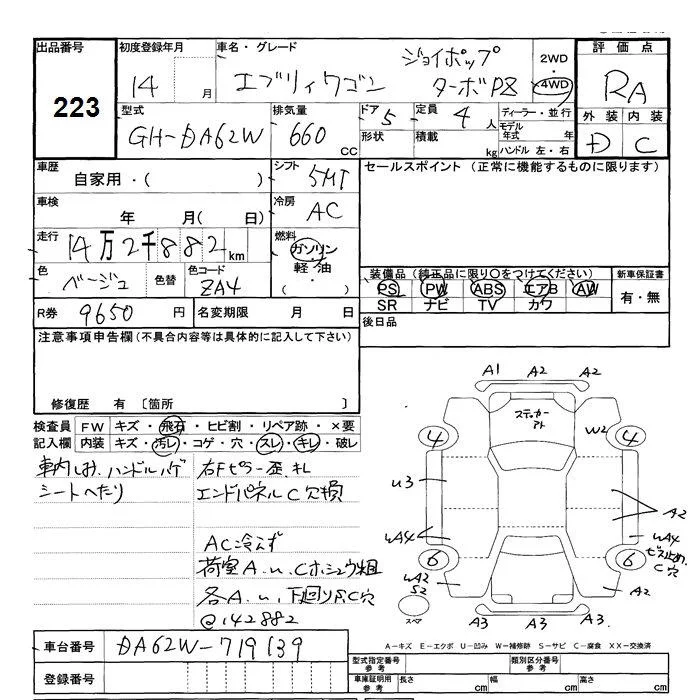 出品番号
223
初度登録年月
14 月
車名・グレード
エブリィワゴン
ジョイポップ
ターボPZ
2WD
・
4WD
評価点
RA
外装 内装
D C
型式
GH-DA62W
排気量
660 CC
ドア
5
形状
定員
4 人
積載
kg
ディーラー・並行
モデル年式 年
ハンドル 左・右
車歴
自家用・( )
シフト
5MT
車検
年 月( 日)
冷房
AC
走行
14万2千882km
燃料
ガソリン
軽・油
・( )
色
ベージュ
色替
色コード
ZA4
R券 9650 円
名変期限 月 日
セールスポイント (正常に機能するものに限ります)
装備品 (純正品に限り○をつけてください)
PS PW ABS エアB AW
SR ナビ TV カワ
新車保証書
有・無
後日品
注意事項申告欄(不具合内容等は具体的に記入して下さい)
修復歴 有 〔箇所 〕
検査員 FW キズ・飛石・ヒビ割・リペア跡・×要
記入欄 内装 キズ・汚レ・コゲ・穴・スレ・キレ・破レ
車内しみ、ハンドルハゲ
シートへたり
右Fピラー歪、キレ
エンドパネルC穴損
AC冷えず
荷室A.u.Cホシュウ粗
各A.u、下回りA.C穴
@142882
A1 A2 A2
ステッカー
アト
W2
4 4
u3
A2
uA4 uA4
ビス止め
C穴
6 6
uA2
S2
A2
スペア
A3 A3 A3
A-キズ E-エクボ U-凹み W-補修跡 S-サビ C-腐食 XX-交換済
車台番号 DA62W-719139
登録番号
型式指定番号
参考
類別区分番号
参考
車庫証明用
参考
長さ cm 幅 cm 高さ cm